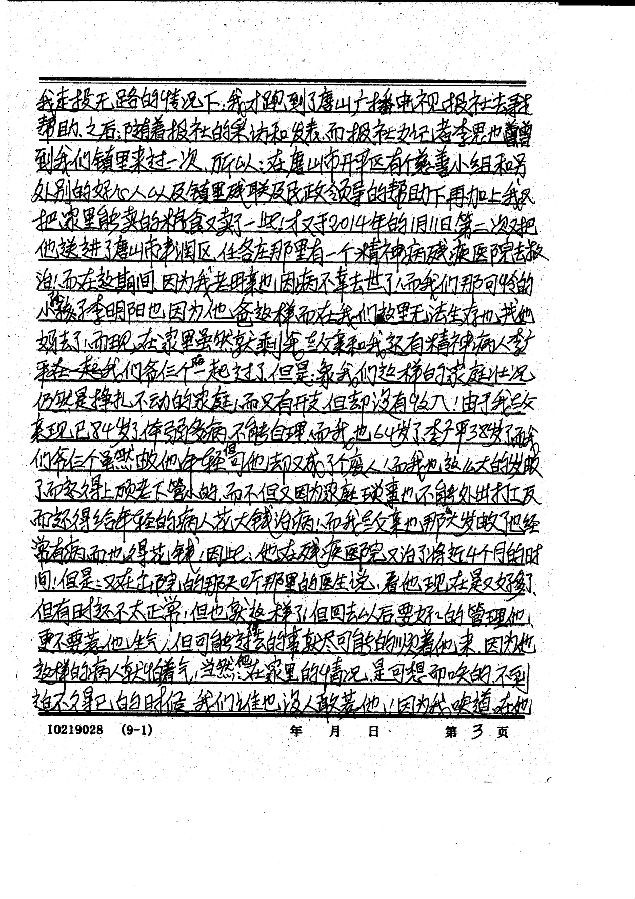 我走投无路的情况下,我才跑到了唐山广播电视报社去寻找
帮助.之后:随着报社的采访和发表.而报社办记者李恩也曾
到我们镇里来过一次、所以:在唐山市开平区有个慈善小组和另
外别的好心人以及镇里残联及民政领导的帮助下再加上我又
把家里能卖的粮食又卖了一些,才又于2014年的1月11日第二次又把
他送进了唐山市丰润区、任各庄那里有一个精神病残疾医院去救
治,而在这期间,因为我老母亲也因病不幸去世了,而我们那可怜的
小孩子李明阳也因为他爸这样而在我们这里无法生存也找他
妈去了,而现在家里虽然就剩我岁父亲和我还有精神病人李
平在一起我们爷三个一起过了但是:象我们这样的家庭状况
仍然是挣扎不动的家庭,而又有开支但却没有收入!由于我父
亲现已84岁了体弱多病不能自理而我也64岁了李子平38岁了而我
们爷三个虽然他年轻但可他却又成了个废人!而我也这么大的岁数
了而还得上顾老下管小的.而不但又因为家庭琐事也不能外出打工反
而还得给年轻的病人花大钱治病!而我父亲也那大岁数了也经
常有病而也得花钱!因此:他在残疾医院又治了将近4个月的时
间!但是:又在出院的那天听那里的医生说,看他现在是又好多了
但有时还不太正常!但也就这样了!但回去以后要好好的管理他,
更不要惹他生气,但可能过去的事就尽可能的顺着他来,因为他
这样的病人就怕着气,当然他在家里的情况,是可想而唤的不到
迫不得已的的时侯 我们谁也没人敢惹他!因为我唤道.在他
10219028 (9-1) 年 月 日 第 3 页